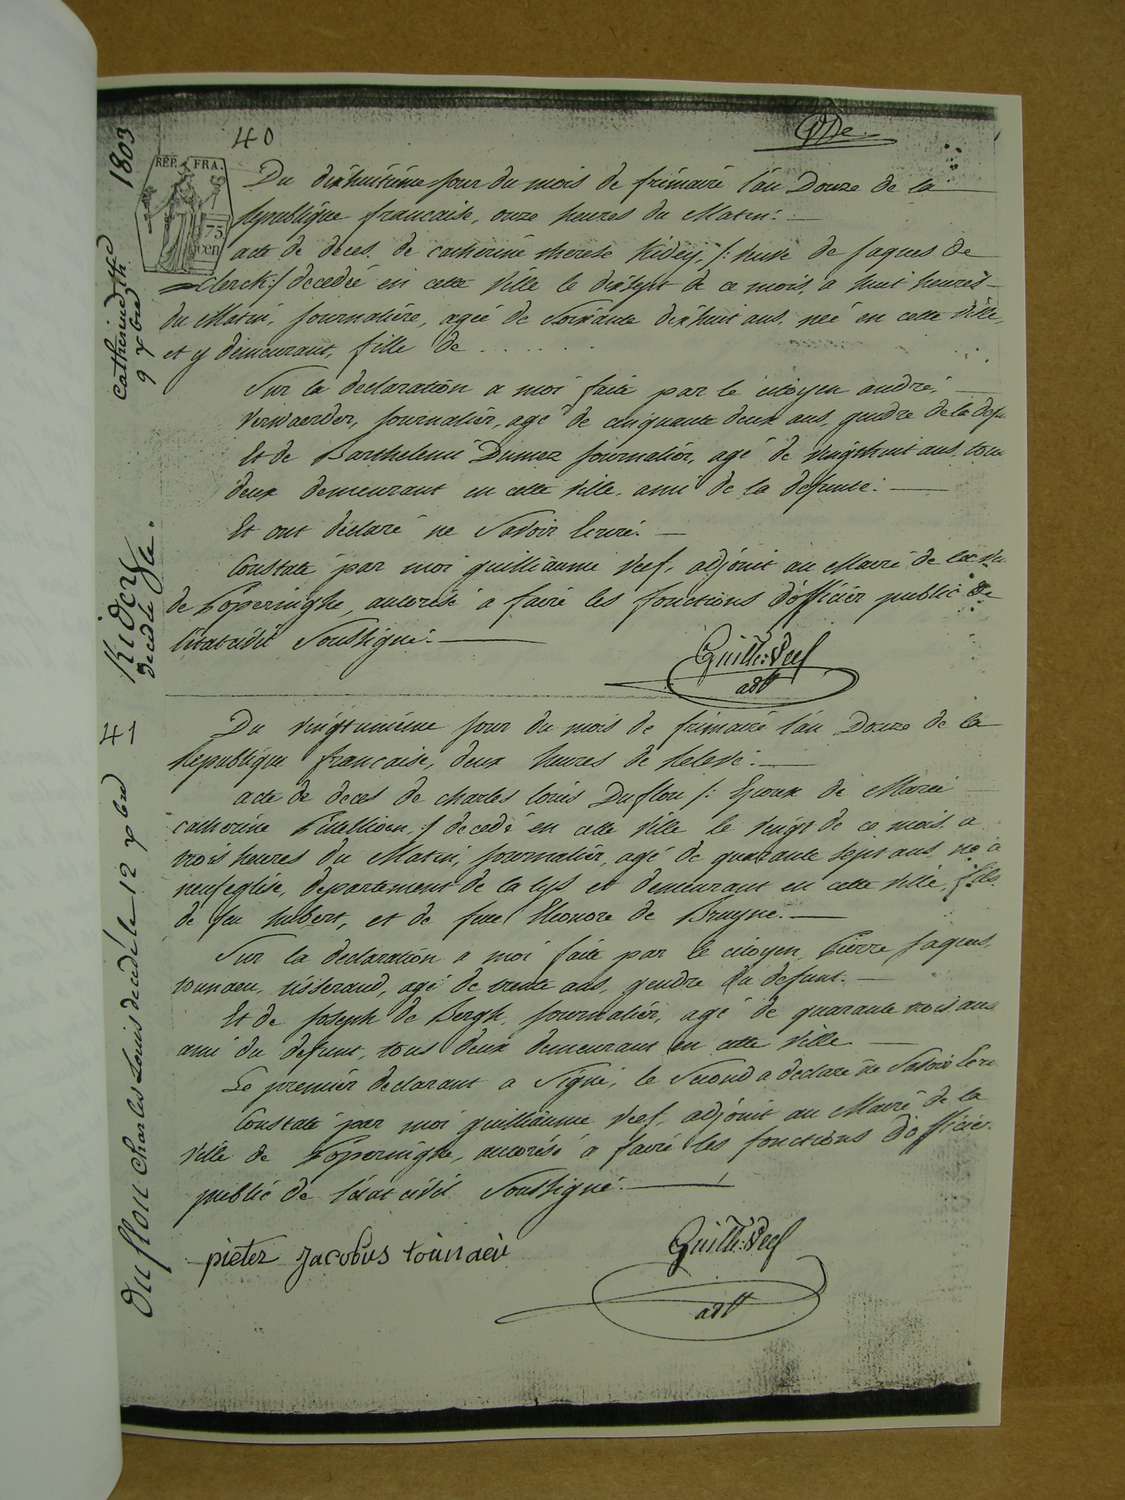 40
1803
RÉP. FRA.
75
cen
Du dixhuitième jour du mois de frimaire l'an Douze de la
Republique francaise, onze heures du Matin: —
acte de deces de catherine therese Kidey, /: veuve de jaques de
Clerck :/ decedée en cette Ville le dixsept de ce mois, a huit heures
du Matin, journalière, agée de Soixante dixhuit ans, née en cette Ville,
et y demeurant, fille de . . . . . .
Sur la declaration a moi faite par le citoyen andré
Verwaerder, journalier, agé de cinquante deux ans, gendre de la def
Et de Barthelemi Dumez journalier, agé de vingthuit ans, tous
deux demeurant en cette Ville, ami de la defunte: —
Et ont déclaré ne Savoir Ecrire —
Constaté par moi guilliaume Veef, adjoint au Maire de la
de Poperinghe, autorisé a faire les fonctions d'officier public de
l'état civil Soussigné: —
Guill: Veef
adt
Catherine th
9 xbre
Kidey
decedé le
41
Du vingtunième jour du mois de frimaire l'an Douze de la
Republique francaise, deux heures de Relevé: —
acte de deces de charles louis Duflou /: Epoux de Marie
catherine :/ decedé en cette Ville le vingt de ce mois, a
trois heures du Matin, journalier, agé de quarante sept ans, né a
neufeglise, departement de la lys et demeurant en cette Ville, fils
de feu hubert, et de feue Eleonore de Bruyne. —
Sur la declaration a moi faite par le citoyen Pierre jaques
tounaeu, tisserand, agé de trente ans, gendre du defunt. —
Et de joseph de Bergh, journalier, agé de quarante trois ans
ami du defunt, tous deux demeurant en cette Ville —
Le premier declarant a Signé, le Second a declaré ne Savoir Ecrire
Constaté par moi guilliaume Veef, adjoint au Maire de la
Ville de Poperinghe, autorisé a faire les fonctions d'officier
public de l'état civil Soussigné. —
pieter Jacobus tounaeu
Guill: Veef
adt
Duflou Charles Louis decedé le 12 xbre